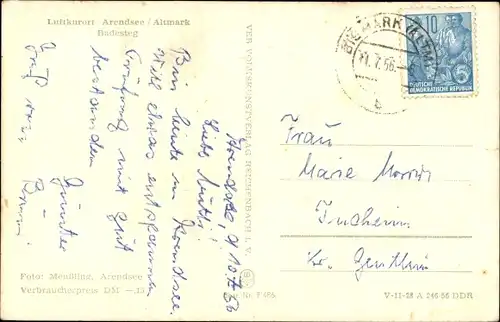 Luftkurort Arendsee / Altmark
Badesteg
Arendsee, d. 10.7.56
Liebe Mutti!
Bin heute in Arendsee.
Will etwas entspannen.
Prüfung mit gut
bestanden
Gruß von
Günter
Foto: Menßling, Arendsee
Verbraucherpreis DM —.15
VEB VOLKSKUNSTVERLAG REICHENBACH I. V.
BISMARK (ALTM)
11.7.56
b
10
DEUTSCHE
DEMOKRATISCHE REPUBLIK
Frau
Marie
Tucheim
Kr. Genthin
V-11-28 A 246-56 DDR